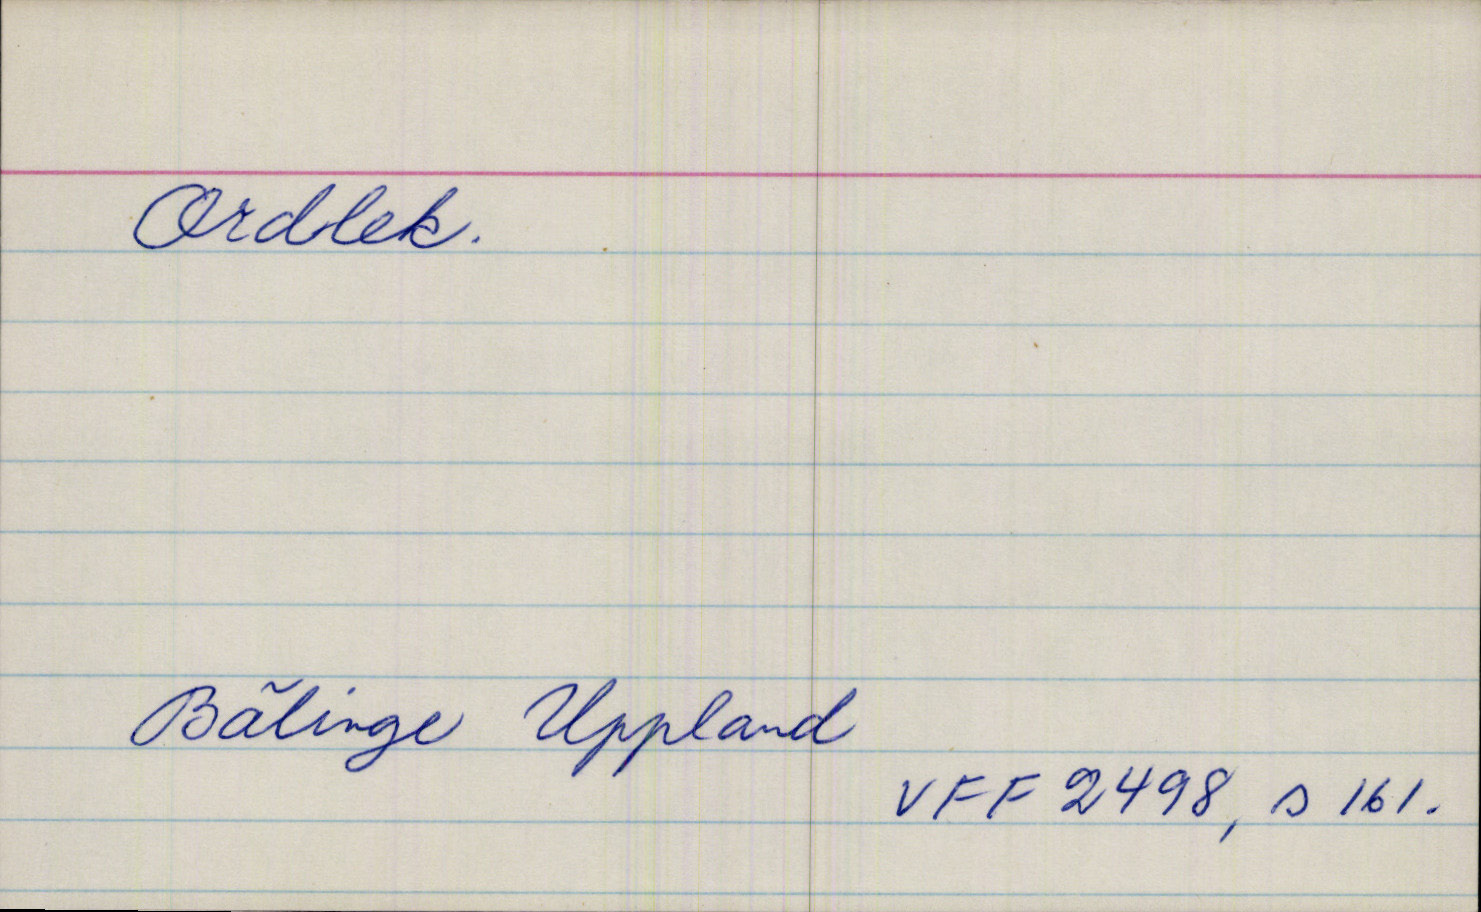 Ordlek.
Bälinge Uppland
VFF 2498, s 161.